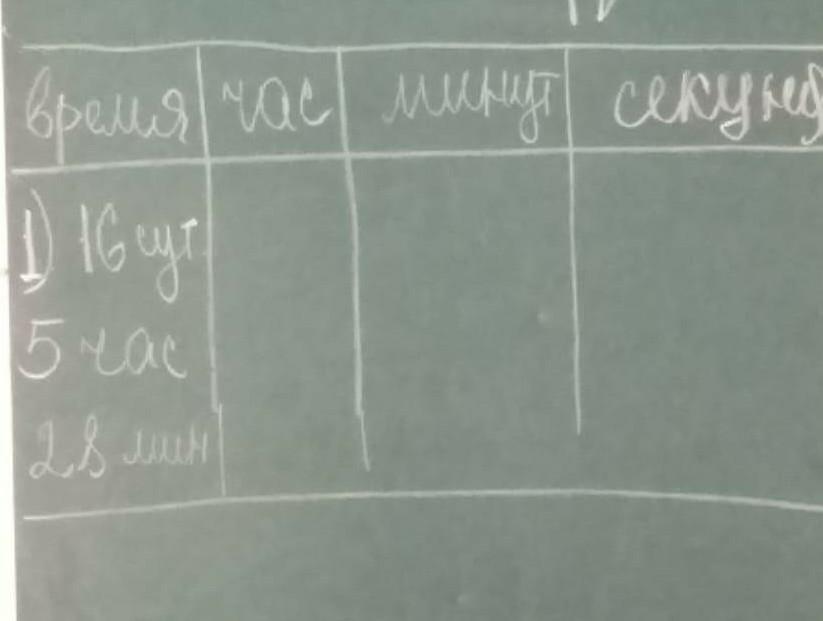 время час минут секунд
1) 16 сут.
5 час
28 мин